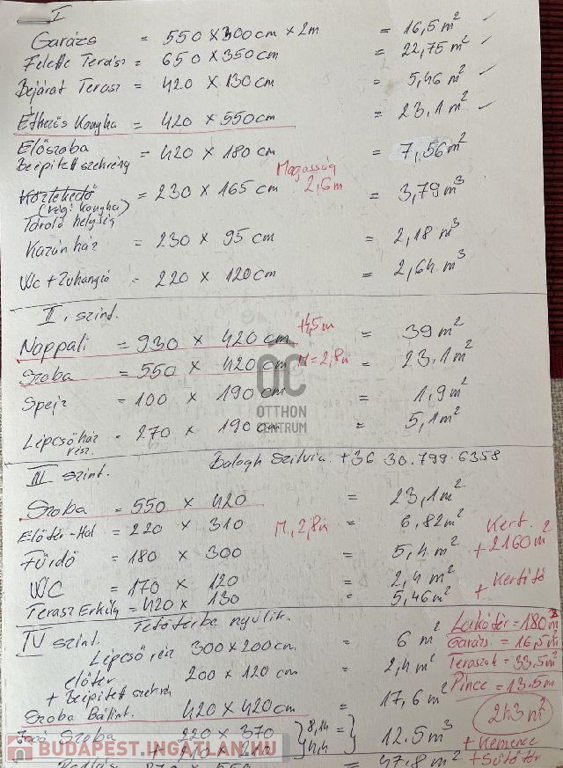 I
Garázs = 550 x 300 cm x 2m = 16,5 m²
Felette Terasz = 650 x 350 cm = 22,75 m²
Bejárat Terasz = 420 x 130 cm = 5,46 m²
Étkezős Konyha = 420 x 550 cm = 23,1 m²
Előszoba
Beépített szekrény = 420 x 180 cm = 7,56 m²
Magasság
2,6 m
Közlekedő = 230 x 165 cm = 3,79 m³
(régi konyha)
Tároló helyiség
Kazánház = 230 x 95 cm = 2,18 m³
Wc + Zuhanyzó = 220 x 120 cm = 2,64 m³
II, szint.
Nappali = 930 x 420 cm = 39 m²
Szoba = 550 x 420 cm M = 2,8m = 23,1 m²
Speiz = 100 x 190 cm = 1,9 m²
Lépcsőház = 270 x 190 cm = 5,1 m²
rész.
OC
OTTHON
CENTRUM
III szint. Balogh Szilvia. +36 30.799.6358
Szoba = 550 x 420 = 23,1 m²
Előtér-Hal = 220 x 310 M, 2,8m = 6,82 m²
Fürdő = 180 x 300 = 5,4 m²
WC = 170 x 120 = 2,4 m²
Terasz Erkély = 420 x 130 = 5,46 m²
Kert.
+2160 m²
+ Kertitó
IV szint. Tetőtérbe nyúlik.
Lépcső rész 300 x 200 cm. = 6 m²
előtér 200 x 120 cm = 2,4 m²
+ Beépített szekrény
Szoba Bálint. 420 x 420 cm = 17,6 m²
Szoba 220 x 370 8,14
4,4 = 12.5 m³
= 47,8 m²
Lakótér = 180 m²
Garázs. = 16,5 m²
Teraszok = 33.5 m²
Pince = 13.5 m
243 m²
+ Kemence
+ Sütőtér
BUDAPEST.INGATLAN.HU